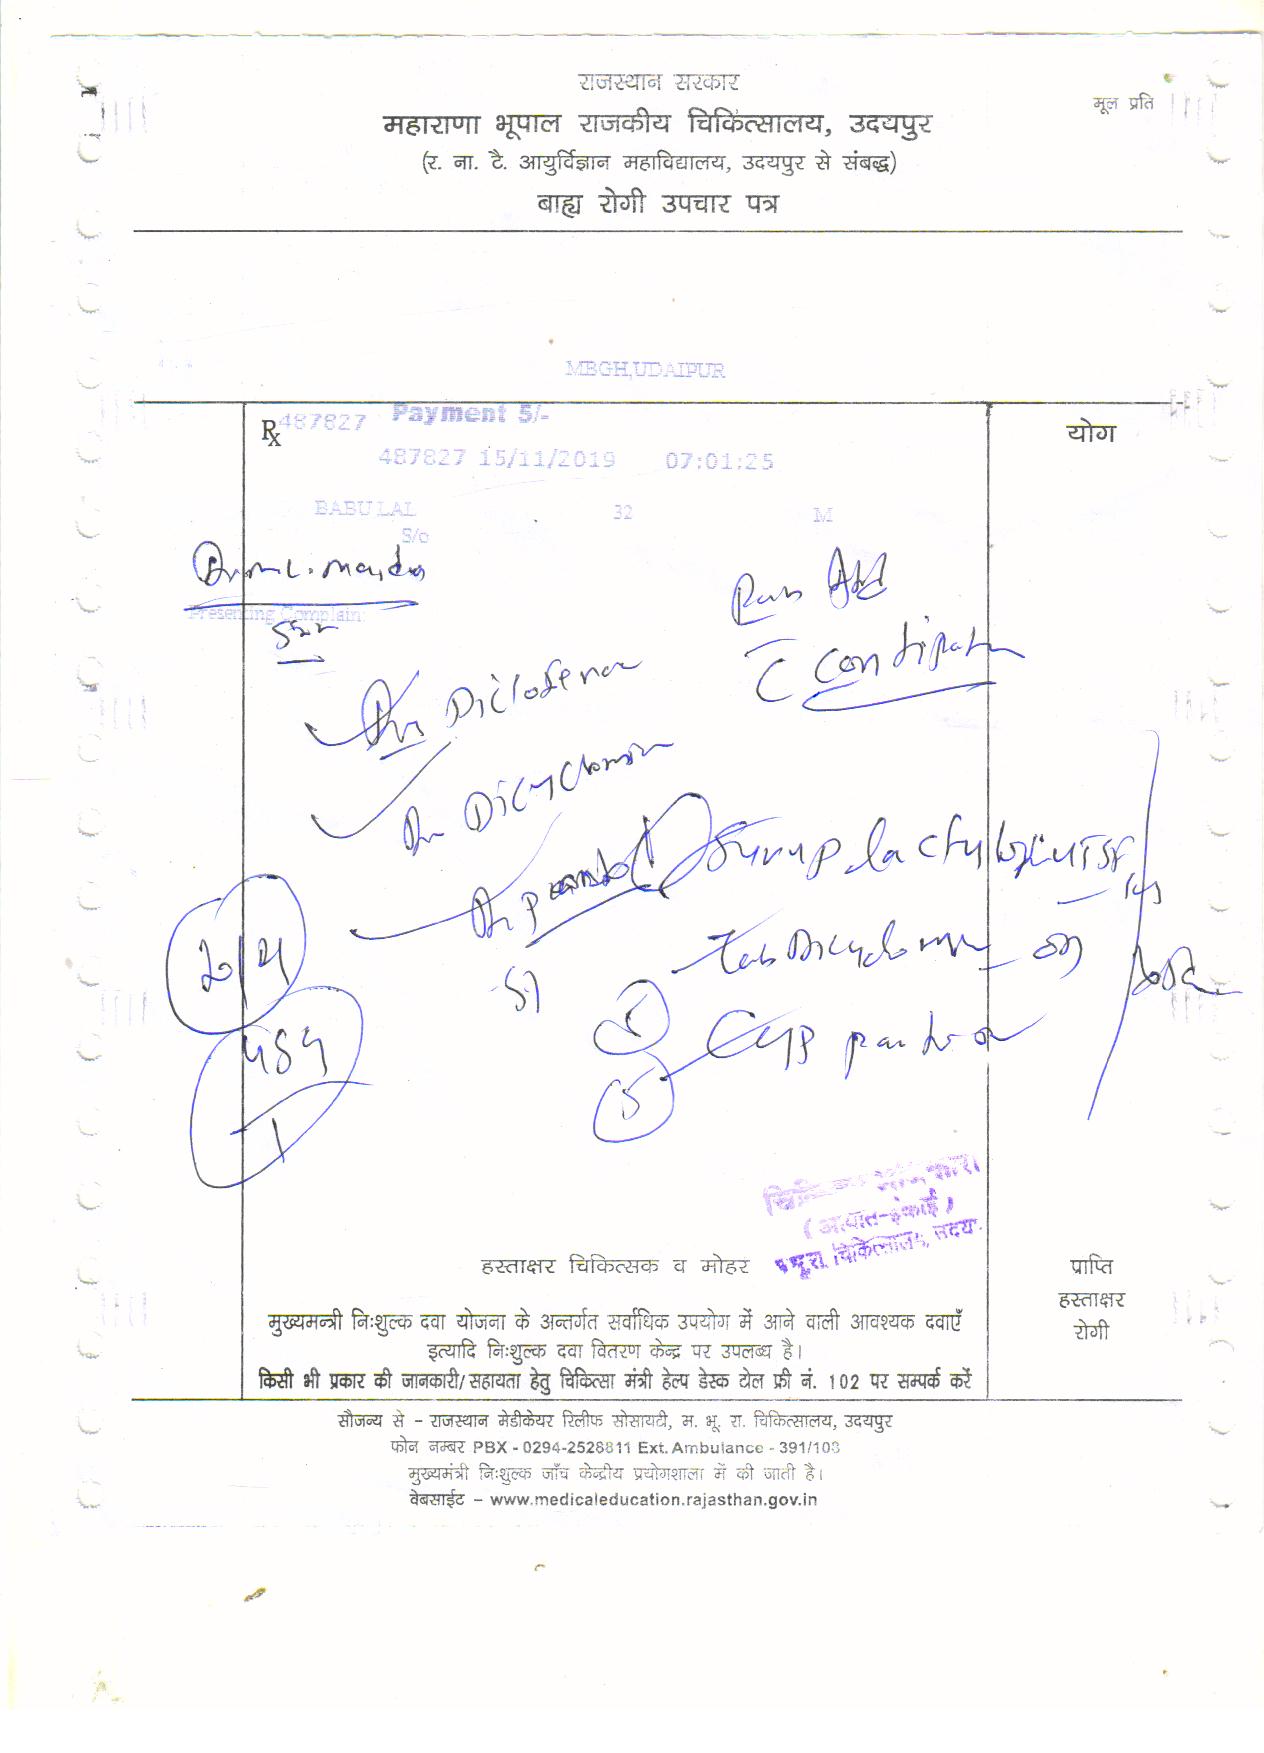 राजस्थान सरकार
मूल प्रति
महाराणा भूपाल राजकीय चिकित्सालय, उदयपुर
(र. ना. टै. आयुर्विज्ञान महाविद्यालय, उदयपुर से संबद्ध)
बाह्य रोगी उपचार पत्र
MBGH,UDAIPUR
Rx
487827 Payment 5/-
योग
487827 15/11/2019 07:01:25
BABU LAL 32 M
S/o
Presenting Complain:
Pain Abd
c Contipatn
Diclofenac
Dicyclomin
Syrup lactulose
Tab Dicyclomin
5
Cap panto
(आपात-इकाई)
चिकित्सालय, उदय
हस्ताक्षर चिकित्सक व मोहर
प्राप्ति
हस्ताक्षर
रोगी
मुख्यमन्त्री निःशुल्क दवा योजना के अन्तर्गत सर्वाधिक उपयोग में आने वाली आवश्यक दवाएँ
इत्यादि निःशुल्क दवा वितरण केन्द्र पर उपलब्ध है।
किसी भी प्रकार की जानकारी/सहायता हेतु चिकित्सा मंत्री हेल्प डेस्क टोल फ्री नं. 102 पर सम्पर्क करें
सौजन्य से – राजस्थान मेडीकेयर रिलीफ सोसायटी, म. भू. रा. चिकित्सालय, उदयपुर
फोन नम्बर PBX - 0294-2528811 Ext. Ambulance - 391/108
मुख्यमंत्री निःशुल्क जाँच केन्द्रीय प्रयोगशाला में की जाती है।
वेबसाईट – www.medicaleducation.rajasthan.gov.in